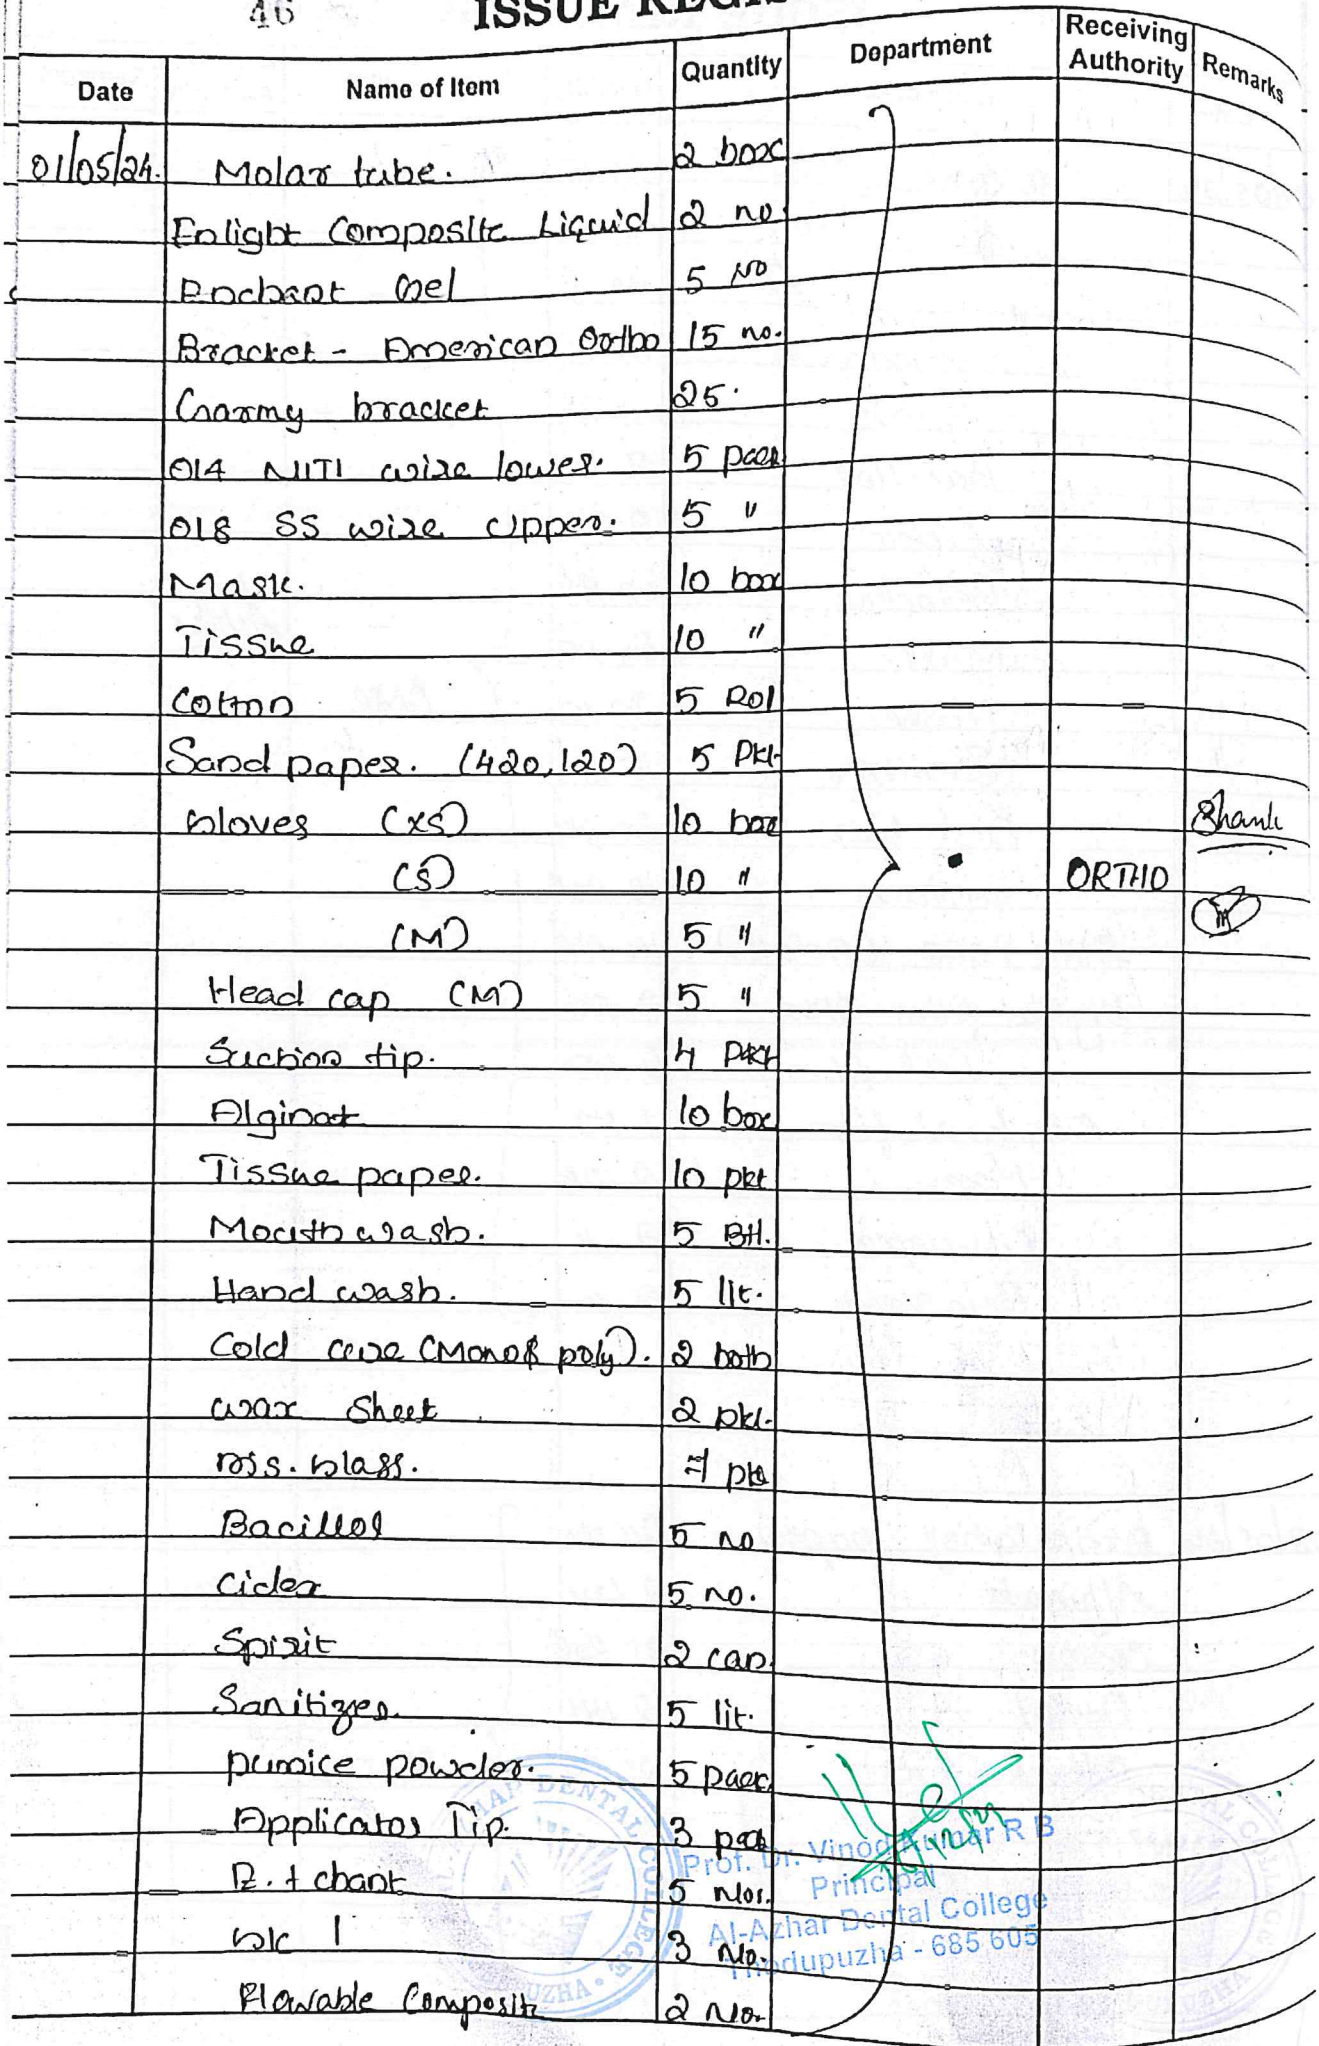 46 ISSUE REGIS
Date Name of Item Quantity Department Receiving Authority Remarks
01/05/24. Molar tube. 2 box
Enlight Composite Liquid 2 no
Enchant Gel 5 No
Bracket - American Ortho 15 no.
Gaarmy bracket 25.
014 NITI wire lower. 5 pack
018 SS wire Upper. 5 "
Mask. 10 box
Tissue 10 "
Cotton 5 Rol
Sand paper. (420,120) 5 Pkt.
Gloves (XS) 10 box
(S) 10 " ORTHO
(M) 5 "
Head cap (M) 5 "
Suction tip. 4 Pkt
Alginat 10 box
Tissue paper. 10 pkt
Mouth wash. 5 Btl.
Hand wash. 5 lit.
Cold cure (Mono & poly). 2 both
wax Sheet 2 pkt.
Glass. 7 pkt
Bacillol 5 no
Cidex 5 no.
Spirit 2 can.
Sanitizer. 5 lit.
pumice powder. 5 pack
Applicator Tip. 3 pack
chant 5 Nos.
1 3 No.
Flowable Composite 2 No.
Prof. Dr. Vinod Kumar R B
Principal
Al-Azhar Dental College
Thodupuzha - 685 605